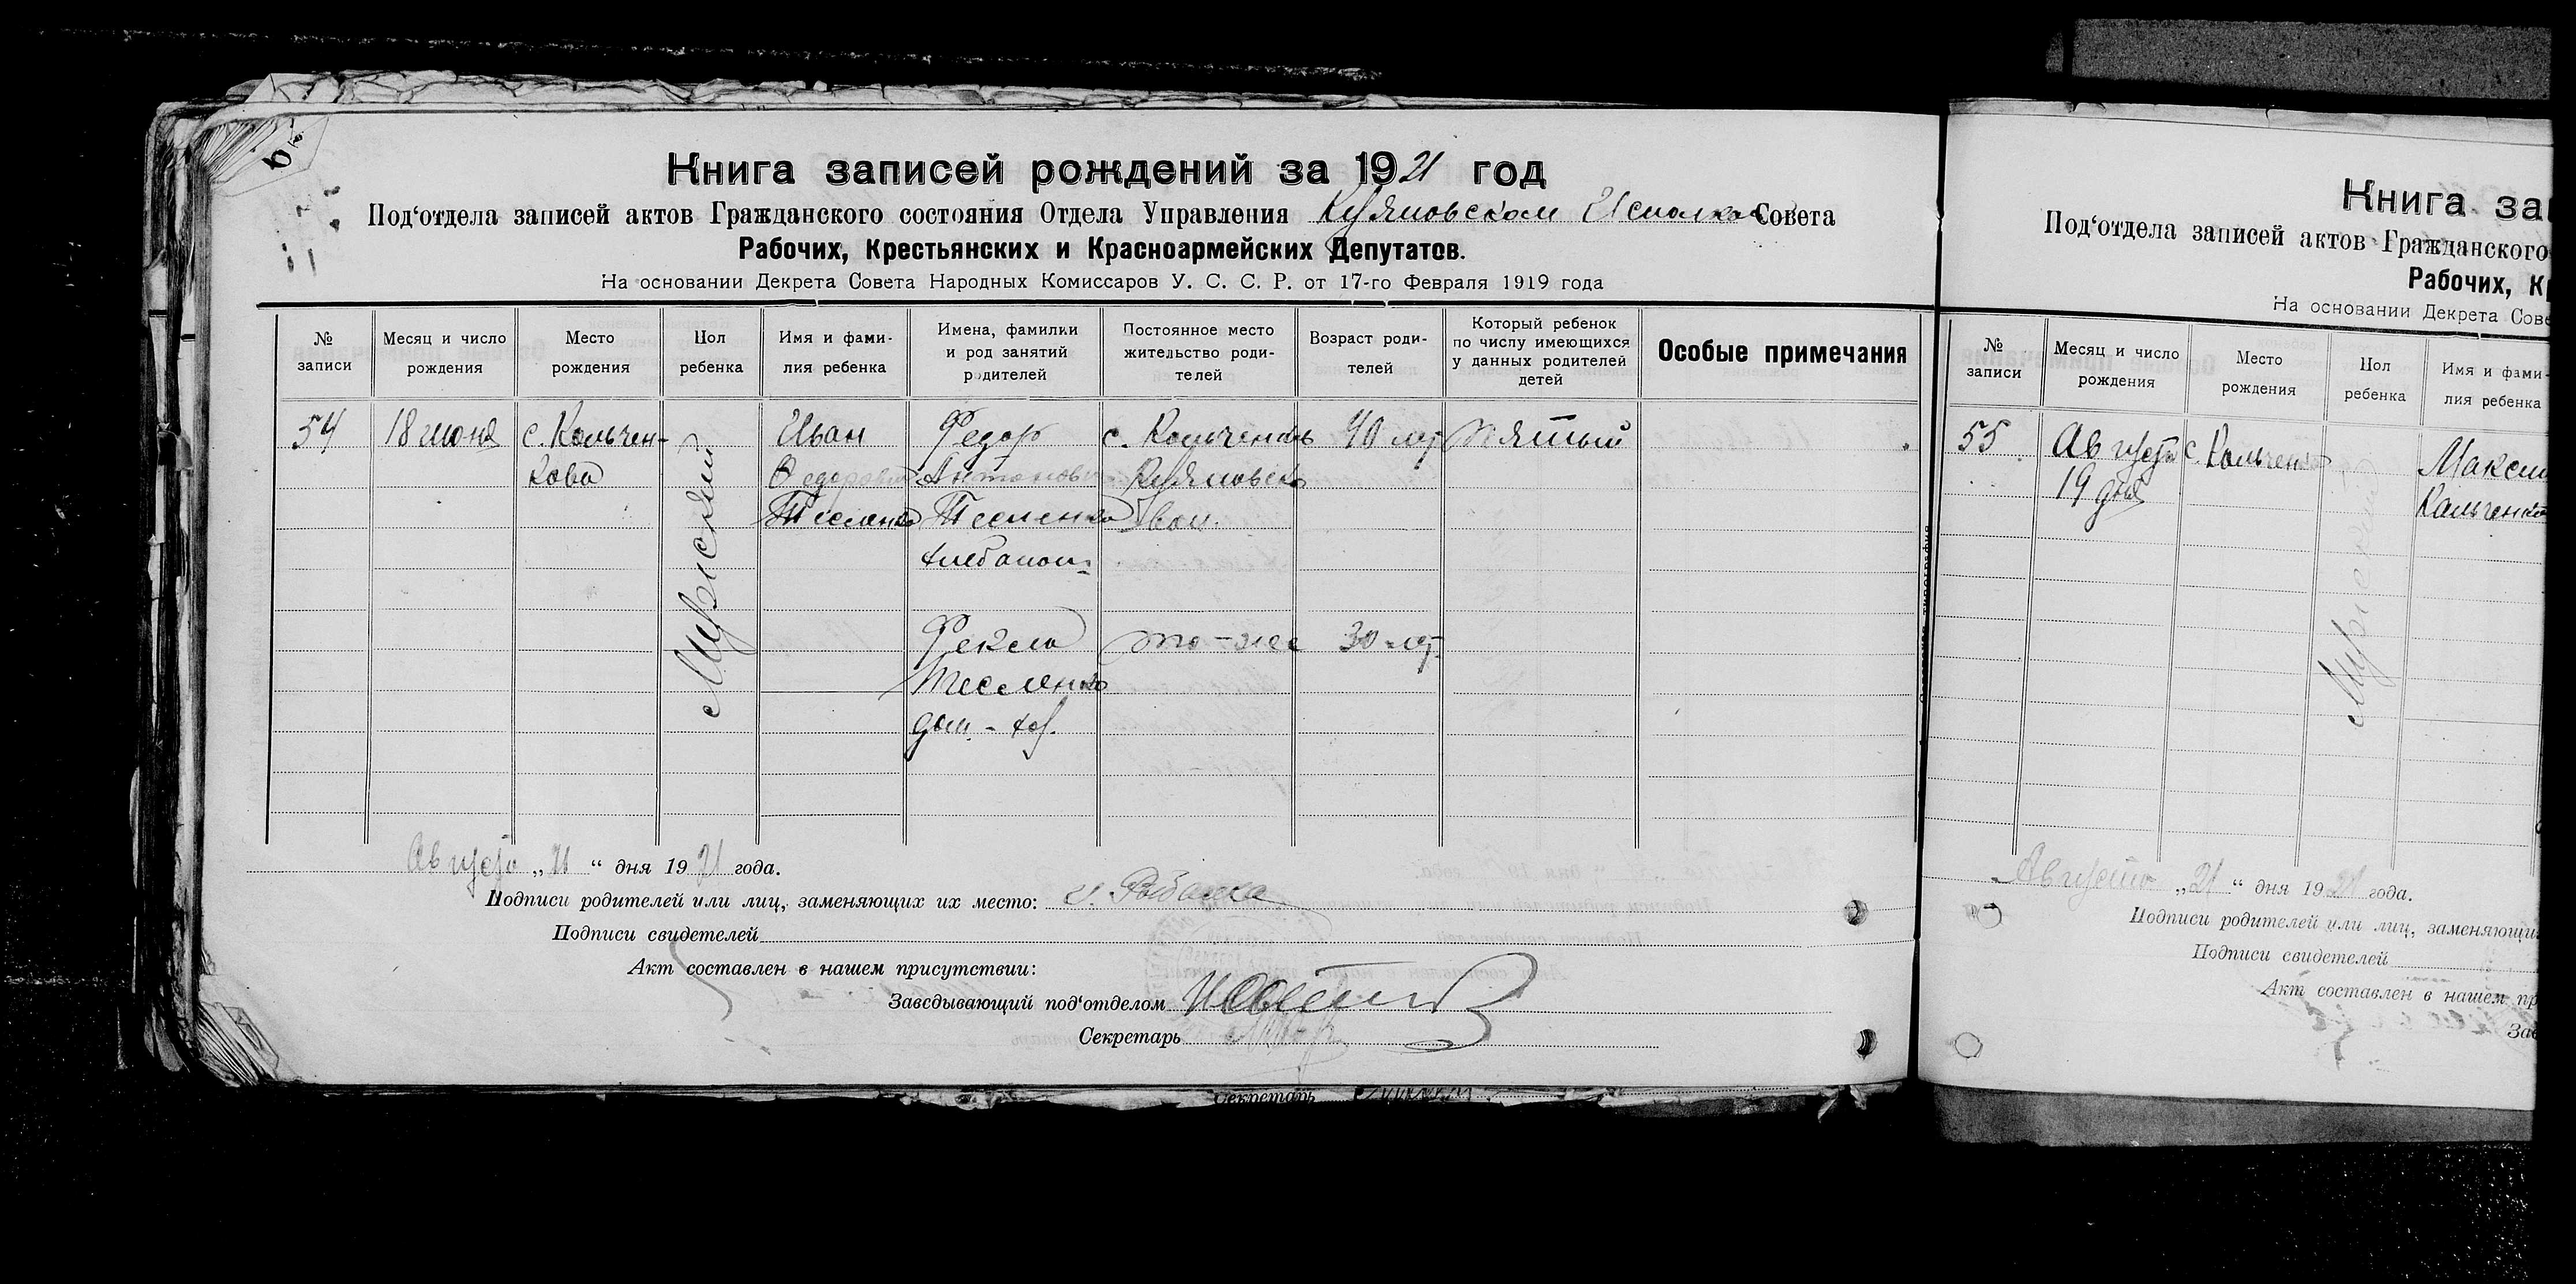 Книга записей рождений за 1921 год
Под‘отдела записей актов Гражданского состояния Отдела Управления Совета
Рабочих, Крестьянских и Красноармейских Депутатов.
На основании Декрета Совета Народных Комиссаров У. С. С. Р. от 17-го Февраля 1919 года
№ записи
Месяц и число рождения
Место рождения
Пол ребенка
Имя и фами-
лия ребенка
Имена, фамилии
и род занятий
родителей
Постоянное место
жительство роди-
телей
Возраст роди-
телей
Который ребенок
по числу имеющихся
у данных родителей
детей
Особые примечания
54
18 июня
с. Кольчен-
кова
Мужский
Иван
Федорович
Тесленко
Федор
Антонович
Тесленко
хлебопаш.
с. Кольченков
40 лет
Пятый
Фекла
Тесленко
дом.-хоз.
то-же
30 лет
Август „21“ дня 1921 года.
Подписи родителей или лиц, заменяющих их место: И. Рыбалка
Подписи свидетелей
Акт составлен в нашем присутствии:
Заведывающий под‘отделом
Секретарь
Секретарь
Книга за
Под‘отдела записей актов Гражданского
Рабочих, К
На основании Декрета Сове
№ записи
Месяц и число рождения
Место рождения
Пол ребенка
Имя и фами-
лия ребенка
55
Августа
19 дня
с. Кольченко
Мужский
Макси
Кальченко
Августа „21“ дня 1921 года.
Подписи родителей или лиц, заменяющи
Подписи свидетелей
Акт составлен в нашем пр
Зав